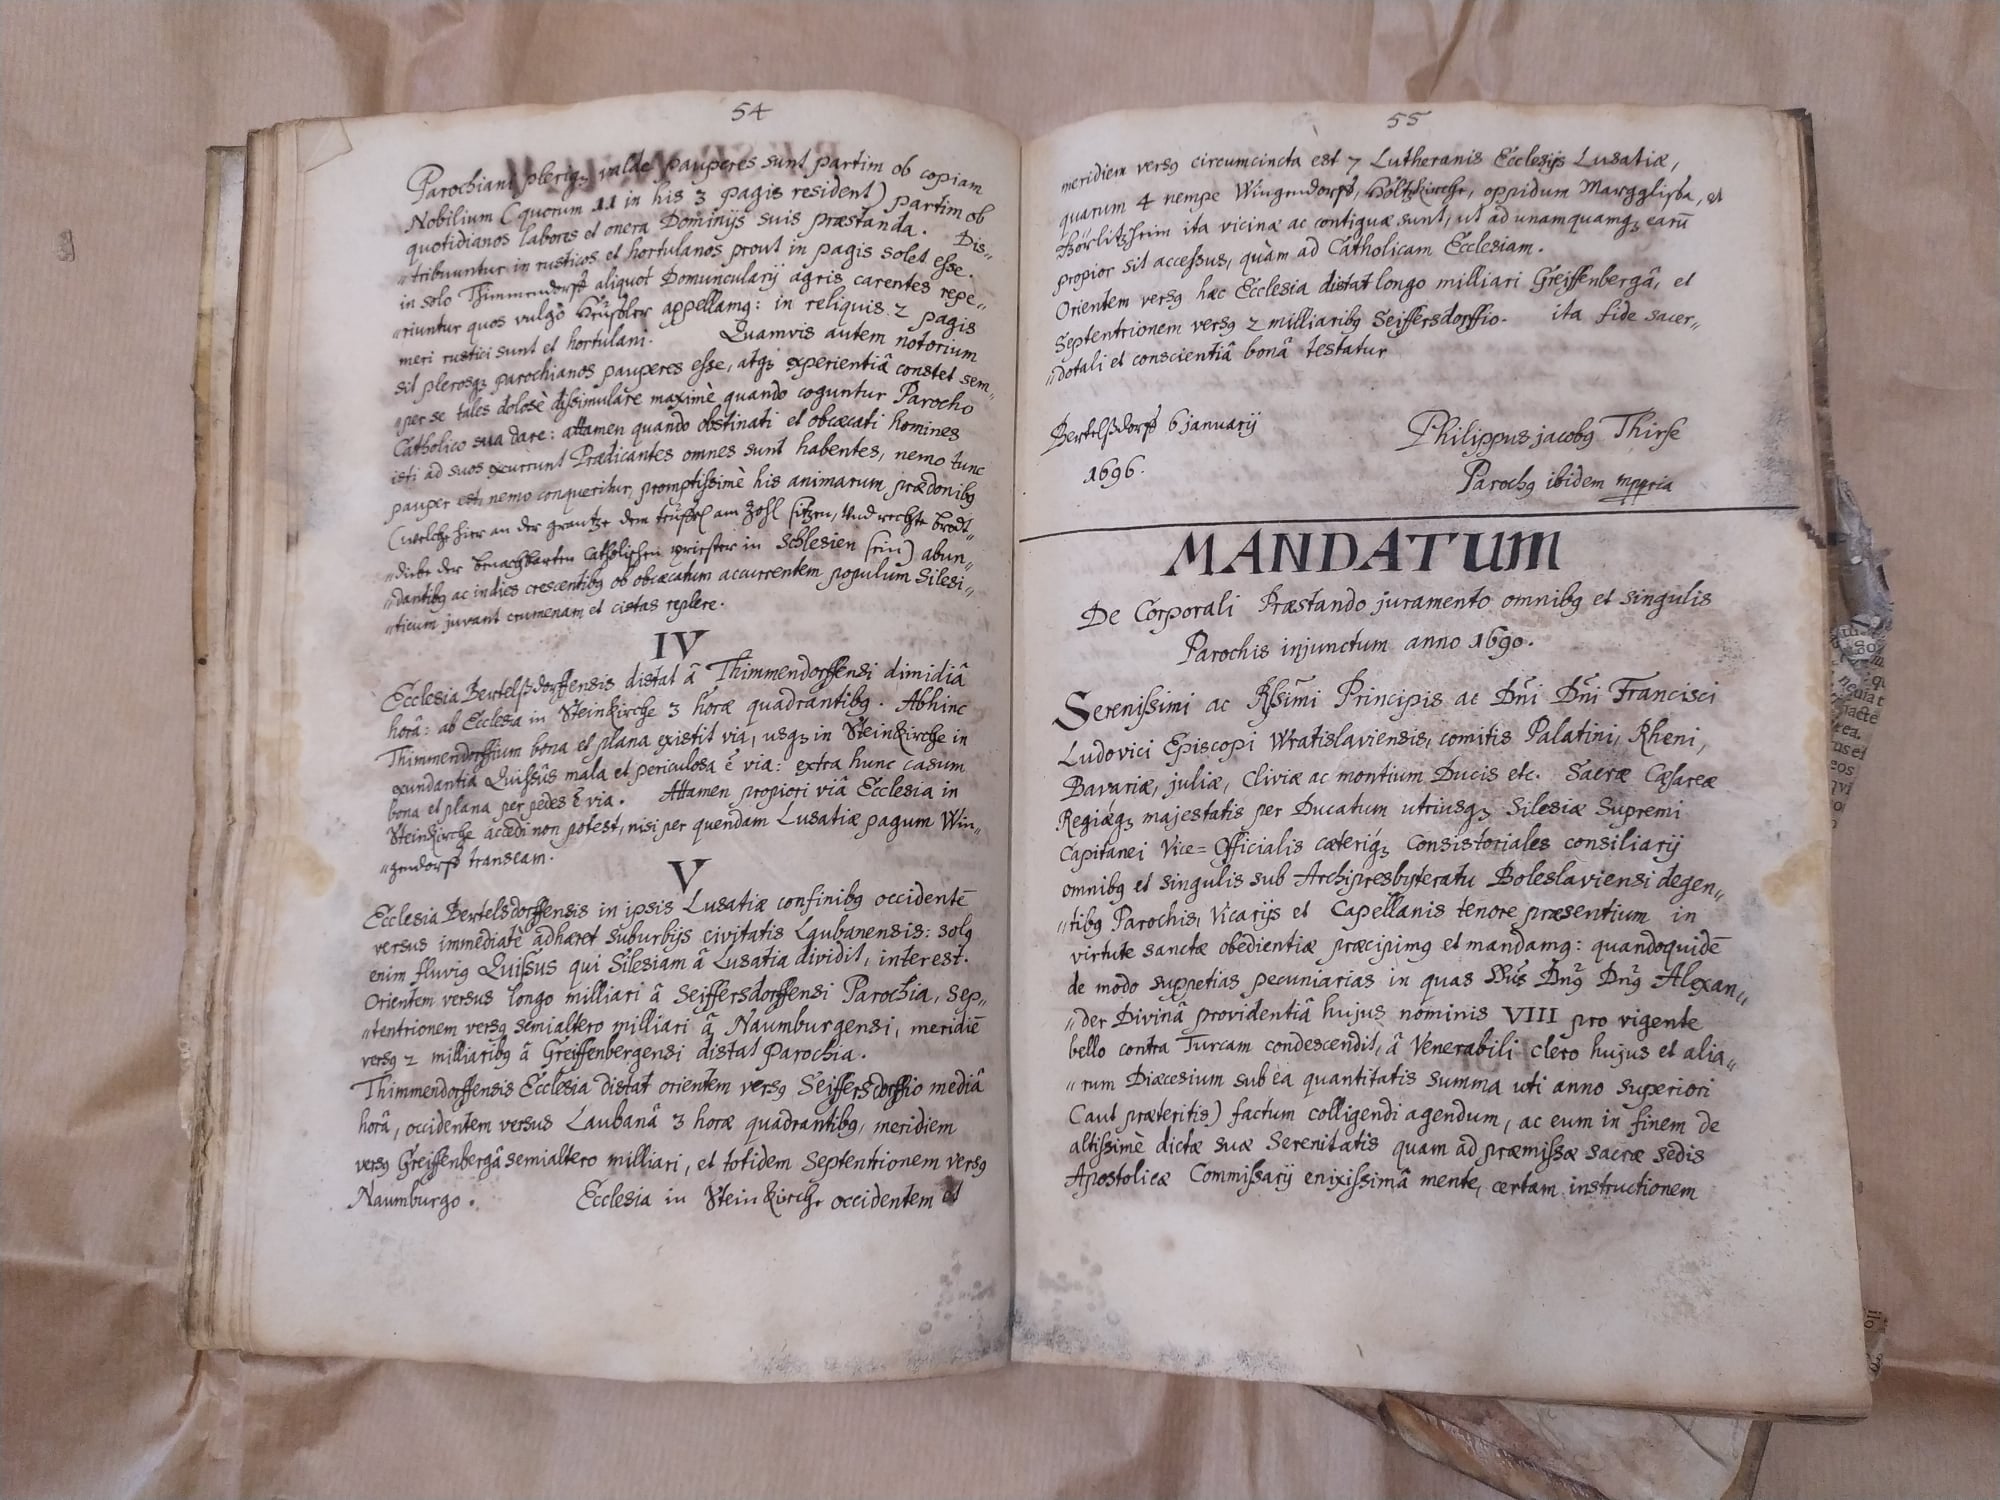 54
Parochiani pleriq₃ valde pauperes sunt partim ob copiam
Nobilium (quorum 11 in his 3 pagis resident) partim ob
quotidianos labores et onera Dominijs suis præstanda. Dis„
„tribuuntur in rusticos et hortulanos prout in pagis solet esse.
in solo Thimmendorff aliquot Domuncularij agris carentes repe„
„riuntur quos vulgò Heüßler appellamꝰ: in reliquis 2 pagis
meri rustici sunt et hortulani. Quamvis autem notorium
sit plerosq₃ parochianos pauperes esse, atq₃ experientiâ constet sem„
„per se tales dolosè dissimulare maximè quando coguntur Parocho
Catholico sua dare: attamen quando obstinati et obcæcati homines
isti ad suos excurrunt Prædicantes omnes sunt habentes, nemo tunc
pauper est, nemo conqueritur, promptissimè his animarum prædonibꝰ
(welche hier an der grantze dem teüffel am Zohl sitzen, Und rechte brodt„
„diebe der benachbarten Catholischen priester in Schlesien sein) abun„
„dantibꝰ ac indies crescentibꝰ ob obcæcatum accurrentem populum Silesi„
„ticum juvant crumenam et cistas replere.
IV
Ecclesia Bertelßdorffensis distat â Thimmendorffensi dimidiâ
horâ: ab Ecclesia in Steinkirche 3 horæ quadrantibꝰ. Abhinc
Thimmendorffium bona et plana existit via, usq₃ in Steinkirche in
exundantiâ Quissûs mala et periculosa ē via: extra hunc casum
bona et plana per pedes ē via. Attamen propiori viâ Ecclesia in
Steinkirche accedi non potest, nisi per quendam Lusatiæ pagum Win„
„gendorff transeam.
V
Ecclesia Bertelsdorffensis in ipsis Lusatiæ confinibꝰ occidentē
versus immediatè adhæret suburbijs civitatis Laubanensis: solꝰ
enim fluviꝰ Quissus qui Silesiam â Lusatia dividit, interest.
Orientem versus longo milliari â Seiffersdorffensi Parochia, sep„
„tentrionem versꝰ semialtero milliari â Naumburgensi, meridiē
versꝰ 2 milliaribꝰ â Greiffenbergensi distat Parochia.
Thimmendorffensis Ecclesia distat orientem versꝰ Seiffersdorffio mediâ
horâ, occidentem versus Laubanâ 3 horæ quadrantibꝰ, meridiem
versꝰ Greiffenbergâ semialtero milliari, et totidem Septentrionem versꝰ
Naumburgo. Ecclesia in Steinkirche occidentem et
55
meridiem versꝰ circumcincta est 7 Lutheranis Ecclesijs Lusatiæ,
quarum 4 nempe Wingendorff, Holtzkirche, oppidum Margglissa, et
Görlitzheim ita vicinæ ac contiguæ sunt, ut ad unamquamq₃ earū
propior sit accessus, quàm ad Catholicam Ecclesiam.
Orientem versꝰ hæc Ecclesia distat longo milliari Greiffenbergâ, et
Septentrionem versꝰ 2 milliaribꝰ Seiffersdorffio. ita fide sacer„
„dotali et conscientiâ bonâ testatur
Bertelßdorff 6 januarij
1696.
Philippus jacobꝰ Thirse
Parochꝰ ibidem mppria
MANDATUM
De Corporali Præstando juramento omnibꝰ et singulis
Parochis injunctum anno 1690.
Serenissimi ac Rssimi Principis ac Dñi Dñi Francisci
Ludovici Episcopi Wratislaviensis, comitis Palatini, Rheni,
Bavariæ, juliæ, Cliviæ ac montium Ducis etc. Sacræ Cæsareæ
Regiæq₃ majestatis per Ducatum utriusq₃ Silesiæ Supremi
Capitanei Vice=Officialis cæteriq₃ Consistoriales consiliarij
omnibꝰ et singulis sub Archipresbyteratu Boleslaviensi degen„
„tibꝰ Parochis, Vicarijs et Capellanis tenore præsentium in
virtute sanctæ obedientiæ præcipimꝰ et mandamꝰ: quandoquidē
de modo suppetias pecuniarias in quas Dñꝰ Dñꝰ Alexan„
„der Divinâ providentiâ hujus nominis VIII pro vigente
bello contra Turcam condescendit, â Venerabili clero hujus et alia„
„rum Diæcesium sub ea quantitatis summa uti anno superiori
(aut præteritis) factum colligendi agendum, ac eum in finem de
altissimè dictæ suæ Serenitatis quam ad præmissa sacræ sedis
Apostolicæ Commissarij enixissimâ mente, certam instructionem